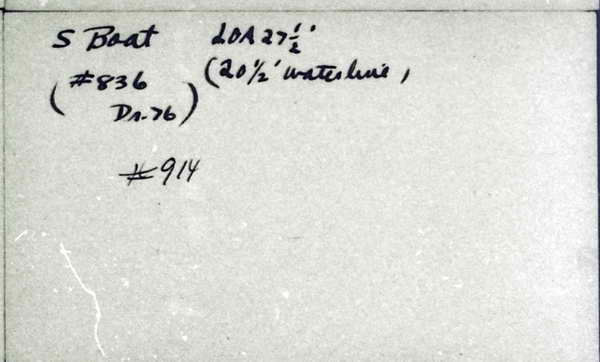 S Boat LOA 27 1/2'
(#836 (20 1/2' waterline,
Dr-76)
#914